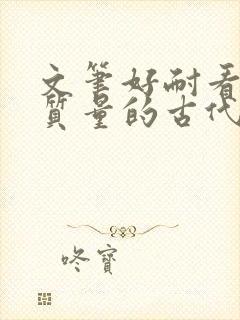 文筆好耐看
質量的古代
咚寶